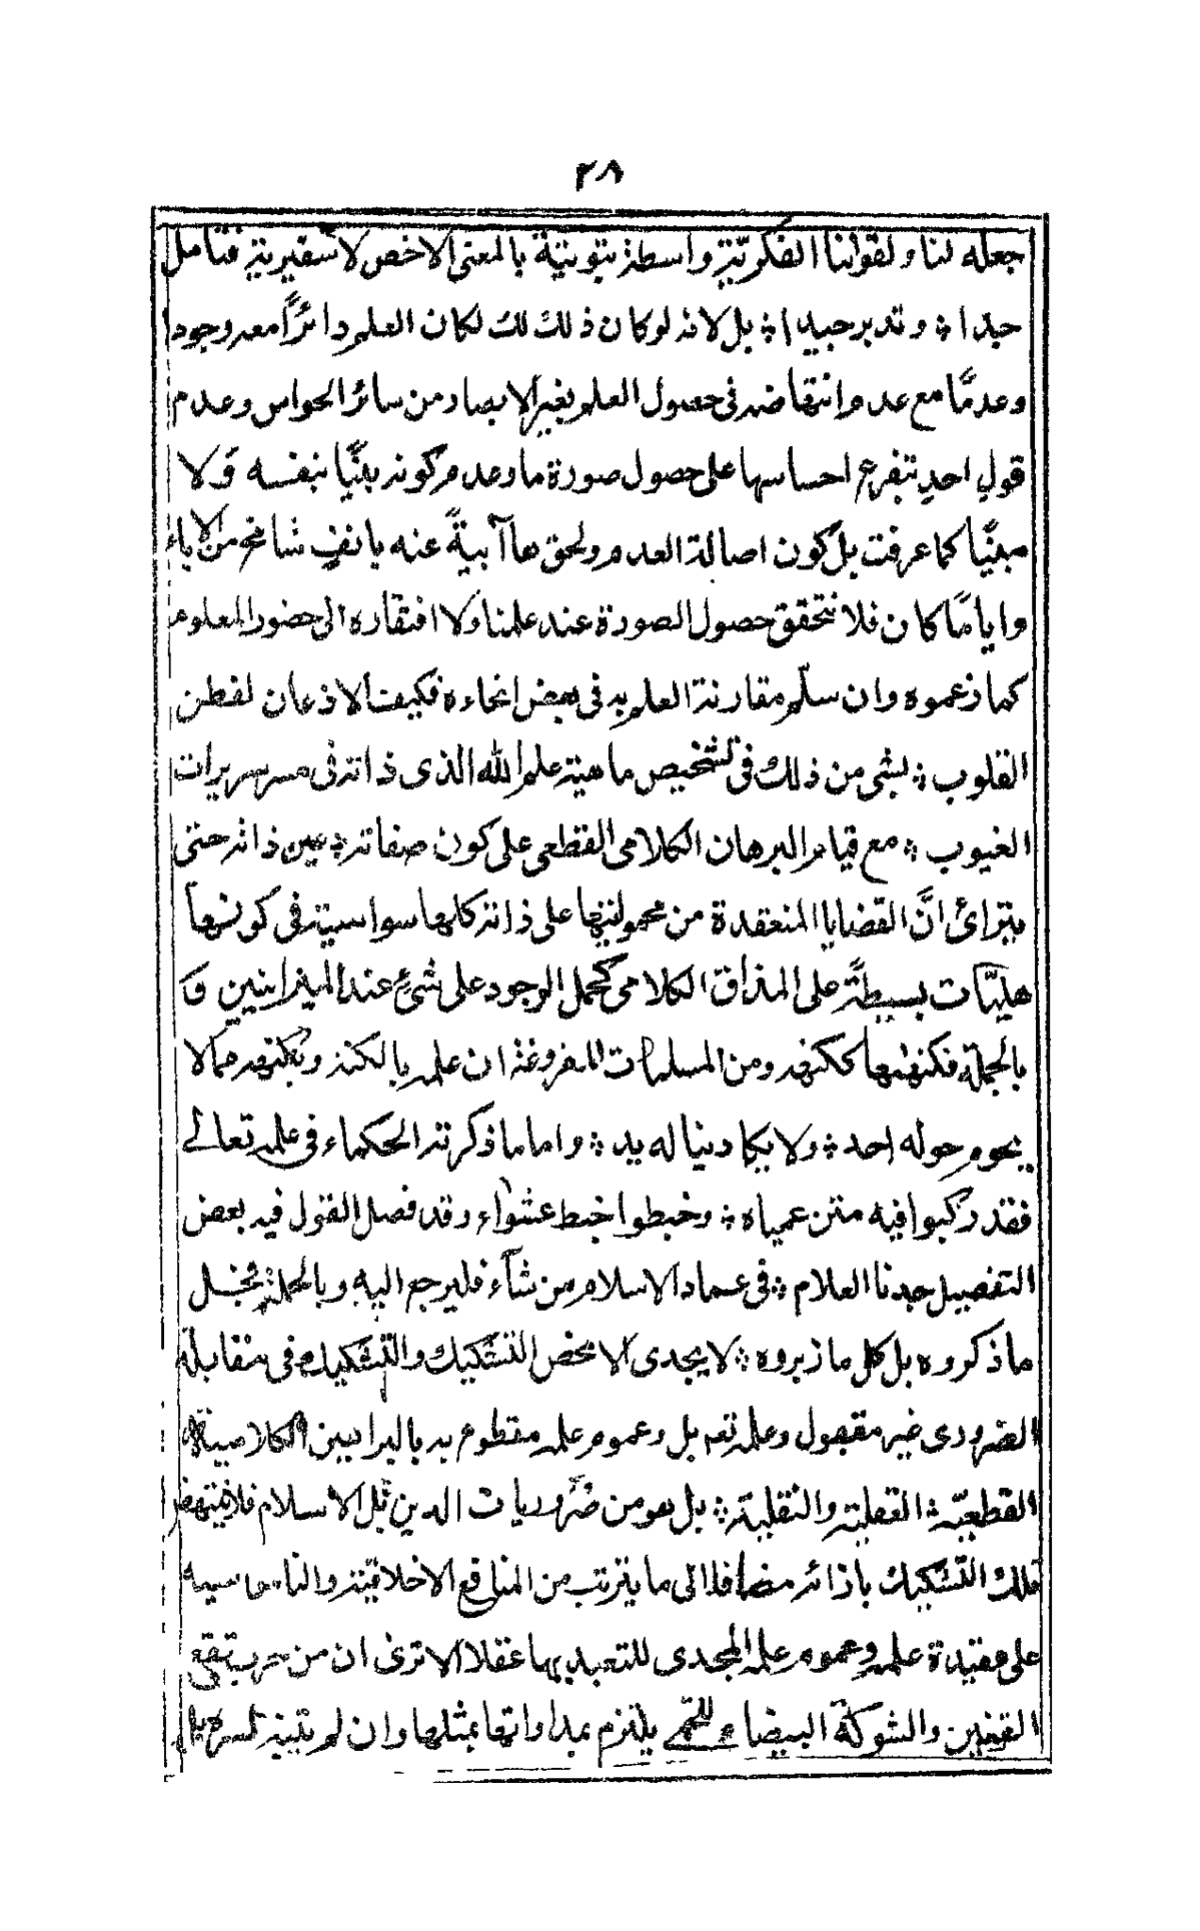 ٢٨
جعله لنا ولقولنا الفكريّة واسطة ثبوتية بالمعنى الاخص لا سفيرية فتامل
جدا ۞ وتدبر جيدا ۞ بل لانه لو كان ذلك لك لكان العلم دائراً معه وجودا
وعدمًا مع عدم وانتقاضه فى حصول العلم بغير الابصار من سائر الحواس وعدم
قول احدٍ بتفرع احساسها على حصول صورة ما وعدم كونه بيّنًا بنفسه وَلا
مبيّنًا كما عرفت بل كون اصالة العدم ولحوقها آبيةً عنه بانفٍ شامخ من الاباء
وايامًا كان فلا نتحقق حصول الصورة عند علمنا ولا افتقاره الى حضور المعلوم
كما زعموه وان سلّم مقارنة العلم به فى بعض انحاءه فكيف الاذعان لفطن
القلوب ۞ بشى من ذلك فى تشخيص ماهية علم الله الذى ذاته فى سر سريرات
الغيوب ۞ مع قيام البرهان الكلامى القطعى على كون صفاته ۞ عين ذاته حتى
يترائ انَّ القضايا المنعقدة من محموليتها على ذاته كلها سواسية فى كونها
هليّات بسيطةً على المذاق الكلامى كحمل الوجود على شئٍ عند الميزانيين وَ
بالجملة فكنهها ككنهه ومن المسلمات المفروغة ان علمه بالكنه وبكنهه مما لا
يحوم حوله احد ۞ ولا يكاد ينا له يد ۞ واما ما ذكرته الحكماء فى علمه تعالے
فقد ركبوا فيه متن عمياه ۞ وخبطوا خبط عشواء وقد فصل القول فيه بعض
التفصيل جدنا العلام ۞ فى عماد الاسلام من شآء فليرجع اليه وبالجملة فجل
ما ذكروه بل كل ما زبروه ۞ لا يجدى الا محض التشكيك والتشكيك فى مقابلة
الضرورى غير مقبول وعلمه تعه بل وعموم علمه مقطوع به بالبراهين الكلامية
القطعيّة ۞ العقلية والنقلية ۞ بل هو من ضروريات الدين بل الاسلام فلا ينتهض
تلك التشكيك بازائه مضافا الى ما يترتب من المنافع الاخلاقية والناموسيه
على عقيدة علمه وعموم علمه المجدى للتعبد بها عقلا الا ترى ان من
والشوكة البيضا يلتزم بمداواتها بمثلها وان لم